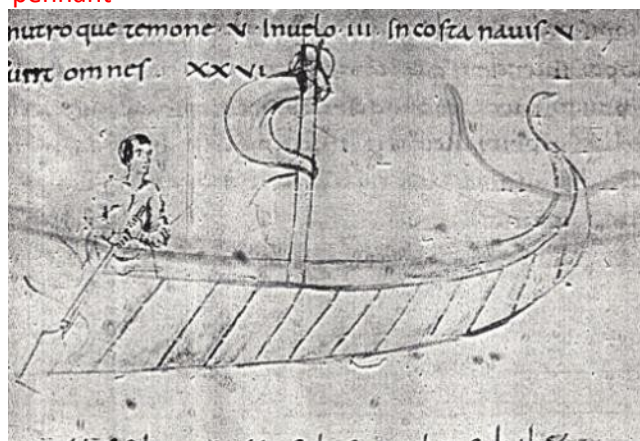 pennant
inutroque temone · V · Inuelo · III · In costa nauis · V ·
sunt omnes XXVI